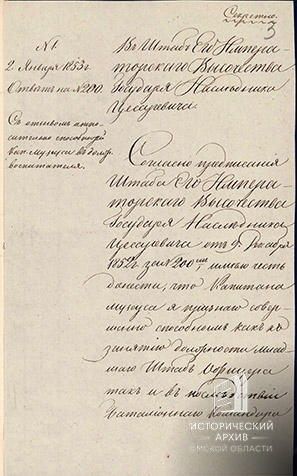 Секретно.
3
№1
2 Января 1853 г.
Ответъ на №200.
Съ отзывомъ относительно способностей
кап. Мунуса въ должн.
воспитателя.
Въ Штабъ Его Импера-
торскаго Высочества
Государя Наслѣдника
Цесаревича.
Согласно предписания
Штаба Его Импера-
торскаго Высочества
Государя Наслѣдника
Цесаревича отъ 9. Декабря
1852 г. за №200, имѣю честь
донести, что Капитана
я признаю совер-
шенно способнымъ какъ къ
занятію должности млад-
шаго Штабъ Офицера
такъ и въ послѣдствіи
баталіоннаго Командира
ИСТОРИЧЕСКИЙ
АРХИВ
ОМСКОЙ ОБЛАСТИ